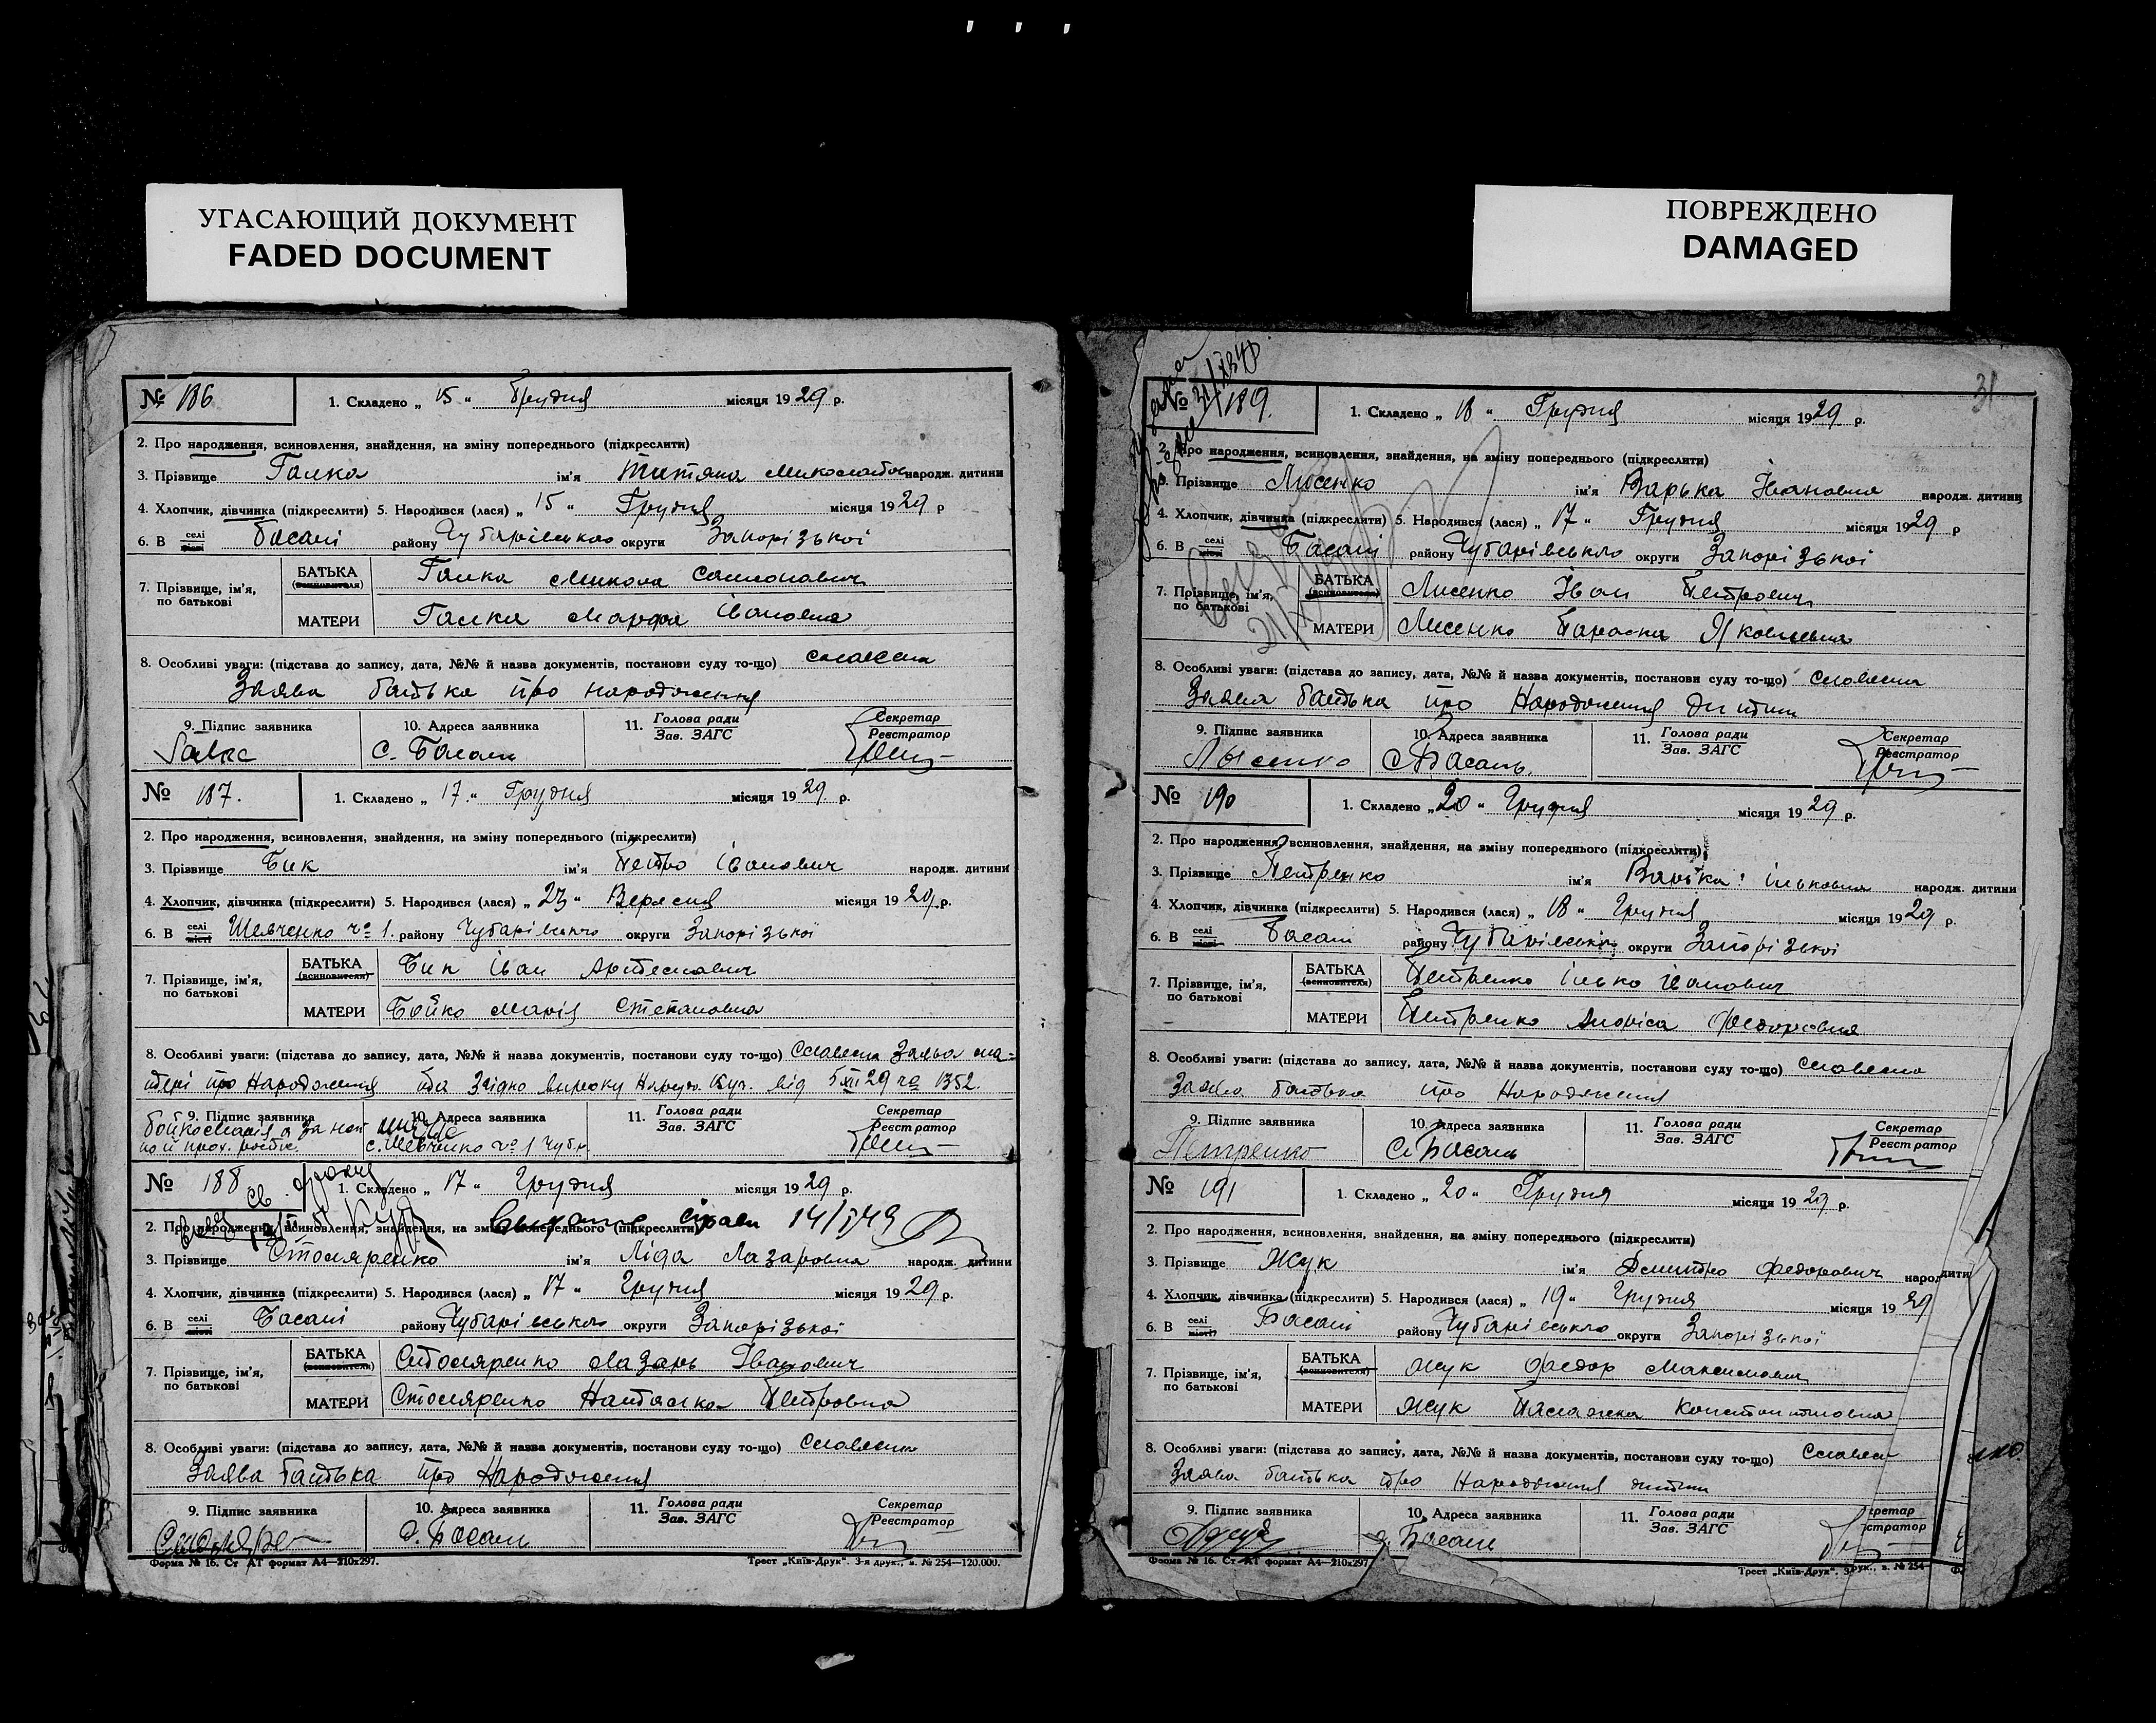 УГАСАЮЩИЙ ДОКУМЕНТ
FADED DOCUMENT
ПОВРЕЖДЕНО
DAMAGED
№ 186
1. Складено „ 15 “ Грудня місяця 1929 р.
2. Про народження, всиновлення, знайдення, на зміну попереднього (підкреслити)
3. Прізвище Галка ім'я Титяна народж. дитини
4. Хлопчик, дівчинка (підкреслити) 5. Народився (лася) „ 15 “ Грудня місяця 1929 р
6. В селі місті Басані району Чубарівського округи Запорізької
7. Прізвище, ім'я, по батькові
БАТЬКА (всиновителя) Галка Микола Самонович
МАТЕРИ Галка Марфа Івановна
8. Особливі уваги: (підстава до запису, дата, №№ й назва документів, постанови суду то-що) словесна
Заява батька про народження
9. Підпис заявника 10. Адреса заявника 11. Голова ради Зав. ЗАГС Секретар Реєстратор
Галка с. Басань
№ 187.
1. Складено „ 17. “ Грудня місяця 1929 р.
2. Про народження, всиновлення, знайдення, на зміну попереднього (підкреслити)
3. Прізвище Бик ім'я Петро Іванович народж. дитини
4. Хлопчик, дівчинка (підкреслити) 5. Народився (лася) „ 23 “ Вересня місяця 1929 р.
6. В селі місті Шевченко № 1. району Чубарівського округи Запорізької
7. Прізвище, ім'я, по батькові
БАТЬКА (всиновителя) Бик Іван Артемович
МАТЕРИ Бойко Марія Степановна
8. Особливі уваги: (підстава до запису, дата, №№ й назва документів, постанови суду то-що) Словесна Заява ма-
тері про Народження та Згідно вироку від 5 XII 29 № 1352.
9. Підпис заявника 10. Адреса заявника 11. Голова ради Зав. ЗАГС Секретар Реєстратор
бойко Марія а за не
с. Шевченко № 1 Чуб.р.
№ 188
1. Складено „ 17 “ Грудня місяця 1929 р.
2. Про народження, всиновлення, знайдення, на зміну попереднього (підкреслити)
14/V 49
3. Прізвище Столяренко ім'я Ліда Лазаровна народж. дитини
4. Хлопчик, дівчинка (підкреслити) 5. Народився (лася) „ 17 “ Грудня місяця 1929 р.
6. В селі місті Басані району Чубарівського округи Запорізької
7. Прізвище, ім'я, по батькові
БАТЬКА (всиновителя) Столяренко Лазарь Іванович
МАТЕРИ Столяренко Наталка Петровна
8. Особливі уваги: (підстава до запису, дата, №№ й назва документів, постанови суду то-що) Словесна
Заява батька про Народження
9. Підпис заявника 10. Адреса заявника 11. Голова ради Зав. ЗАГС Секретар Реєстратор
с. Басань
Форма № 16. Ст АТ формат А4—210х297. Трест „Київ-Друк“. 3-я друк., з. № 254—120.000.
31
№ 189.
1. Складено „ 18 “ Грудня місяця 1929 р.
2. Про народження, всиновлення, знайдення, на зміну попереднього (підкреслити)
3. Прізвище Лисенко ім'я Варька Івановна народж. дитини
4. Хлопчик, дівчинка (підкреслити) 5. Народився (лася) „ 17 “ Грудня місяця 1929 р
6. В селі місті Басані району Чубарівського округи Запорізької
7. Прізвище, ім'я, по батькові
БАТЬКА (всиновителя) Лисенко Іван Петрович
МАТЕРИ Лисенко Параска Яковлевна
8. Особливі уваги: (підстава до запису, дата, №№ й назва документів, постанови суду то-що) Словесна
Заява батька про Народження дитини
9. Підпис заявника 10. Адреса заявника 11. Голова ради Зав. ЗАГС Секретар Реєстратор
Лысенко с Басань.
№ 190
1. Складено „ 20 “ Грудня місяця 1929 р.
2. Про народження, всиновлення, знайдення, на зміну попереднього (підкреслити)
3. Прізвище Петренко ім'я Варька Ільковна народж. дитини
4. Хлопчик, дівчинка (підкреслити) 5. Народився (лася) „ 18 “ Грудня місяця 1929 р.
6. В селі місті Басані району Чубарівського округи Запорізької
7. Прізвище, ім'я, по батькові
БАТЬКА (всиновителя) Петренко Ілько Іванович
МАТЕРИ Петренко Федоровна
8. Особливі уваги: (підстава до запису, дата, №№ й назва документів, постанови суду то-що) Словесна
Заява батька про Народження
9. Підпис заявника 10. Адреса заявника 11. Голова ради Зав. ЗАГС Секретар Реєстратор
Петренко с. Басань
№ 191
1. Складено „ 20 “ Грудня місяця 1929 р.
2. Про народження, всиновлення, знайдення, на зміну попереднього (підкреслити)
3. Прізвище Жук ім'я Дмитро Федорович народ дити
4. Хлопчик, дівчинка (підкреслити) 5. Народився (лася) „ 19 “ Грудня місяця 1929
6. В селі місті Басані району Чубарівського округи Запорізької
7. Прізвище, ім'я, по батькові
БАТЬКА (всиновителя) Жук Федор Максимович
МАТЕРИ Жук Палажка Константиновна
8. Особливі уваги: (підстава до запису, дата, №№ й назва документів, постанови суду то-що) Словесн
Заява батька про Народження дитини
9. Підпис заявника 10. Адреса заявника 11. Голова ради Зав. ЗАГС кретар стратор
с. Басань
Форма № 16. Ст АТ формат А4—210х297 Трест „Київ-Друк“. 3 друк., з. № 254